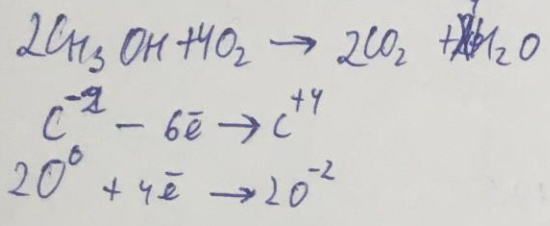 2CH₃OH + 4O₂ → 2CO₂ + H₂O
C⁻² − 6ē → C⁺⁴
2O⁰ + 4ē → 2O⁻²